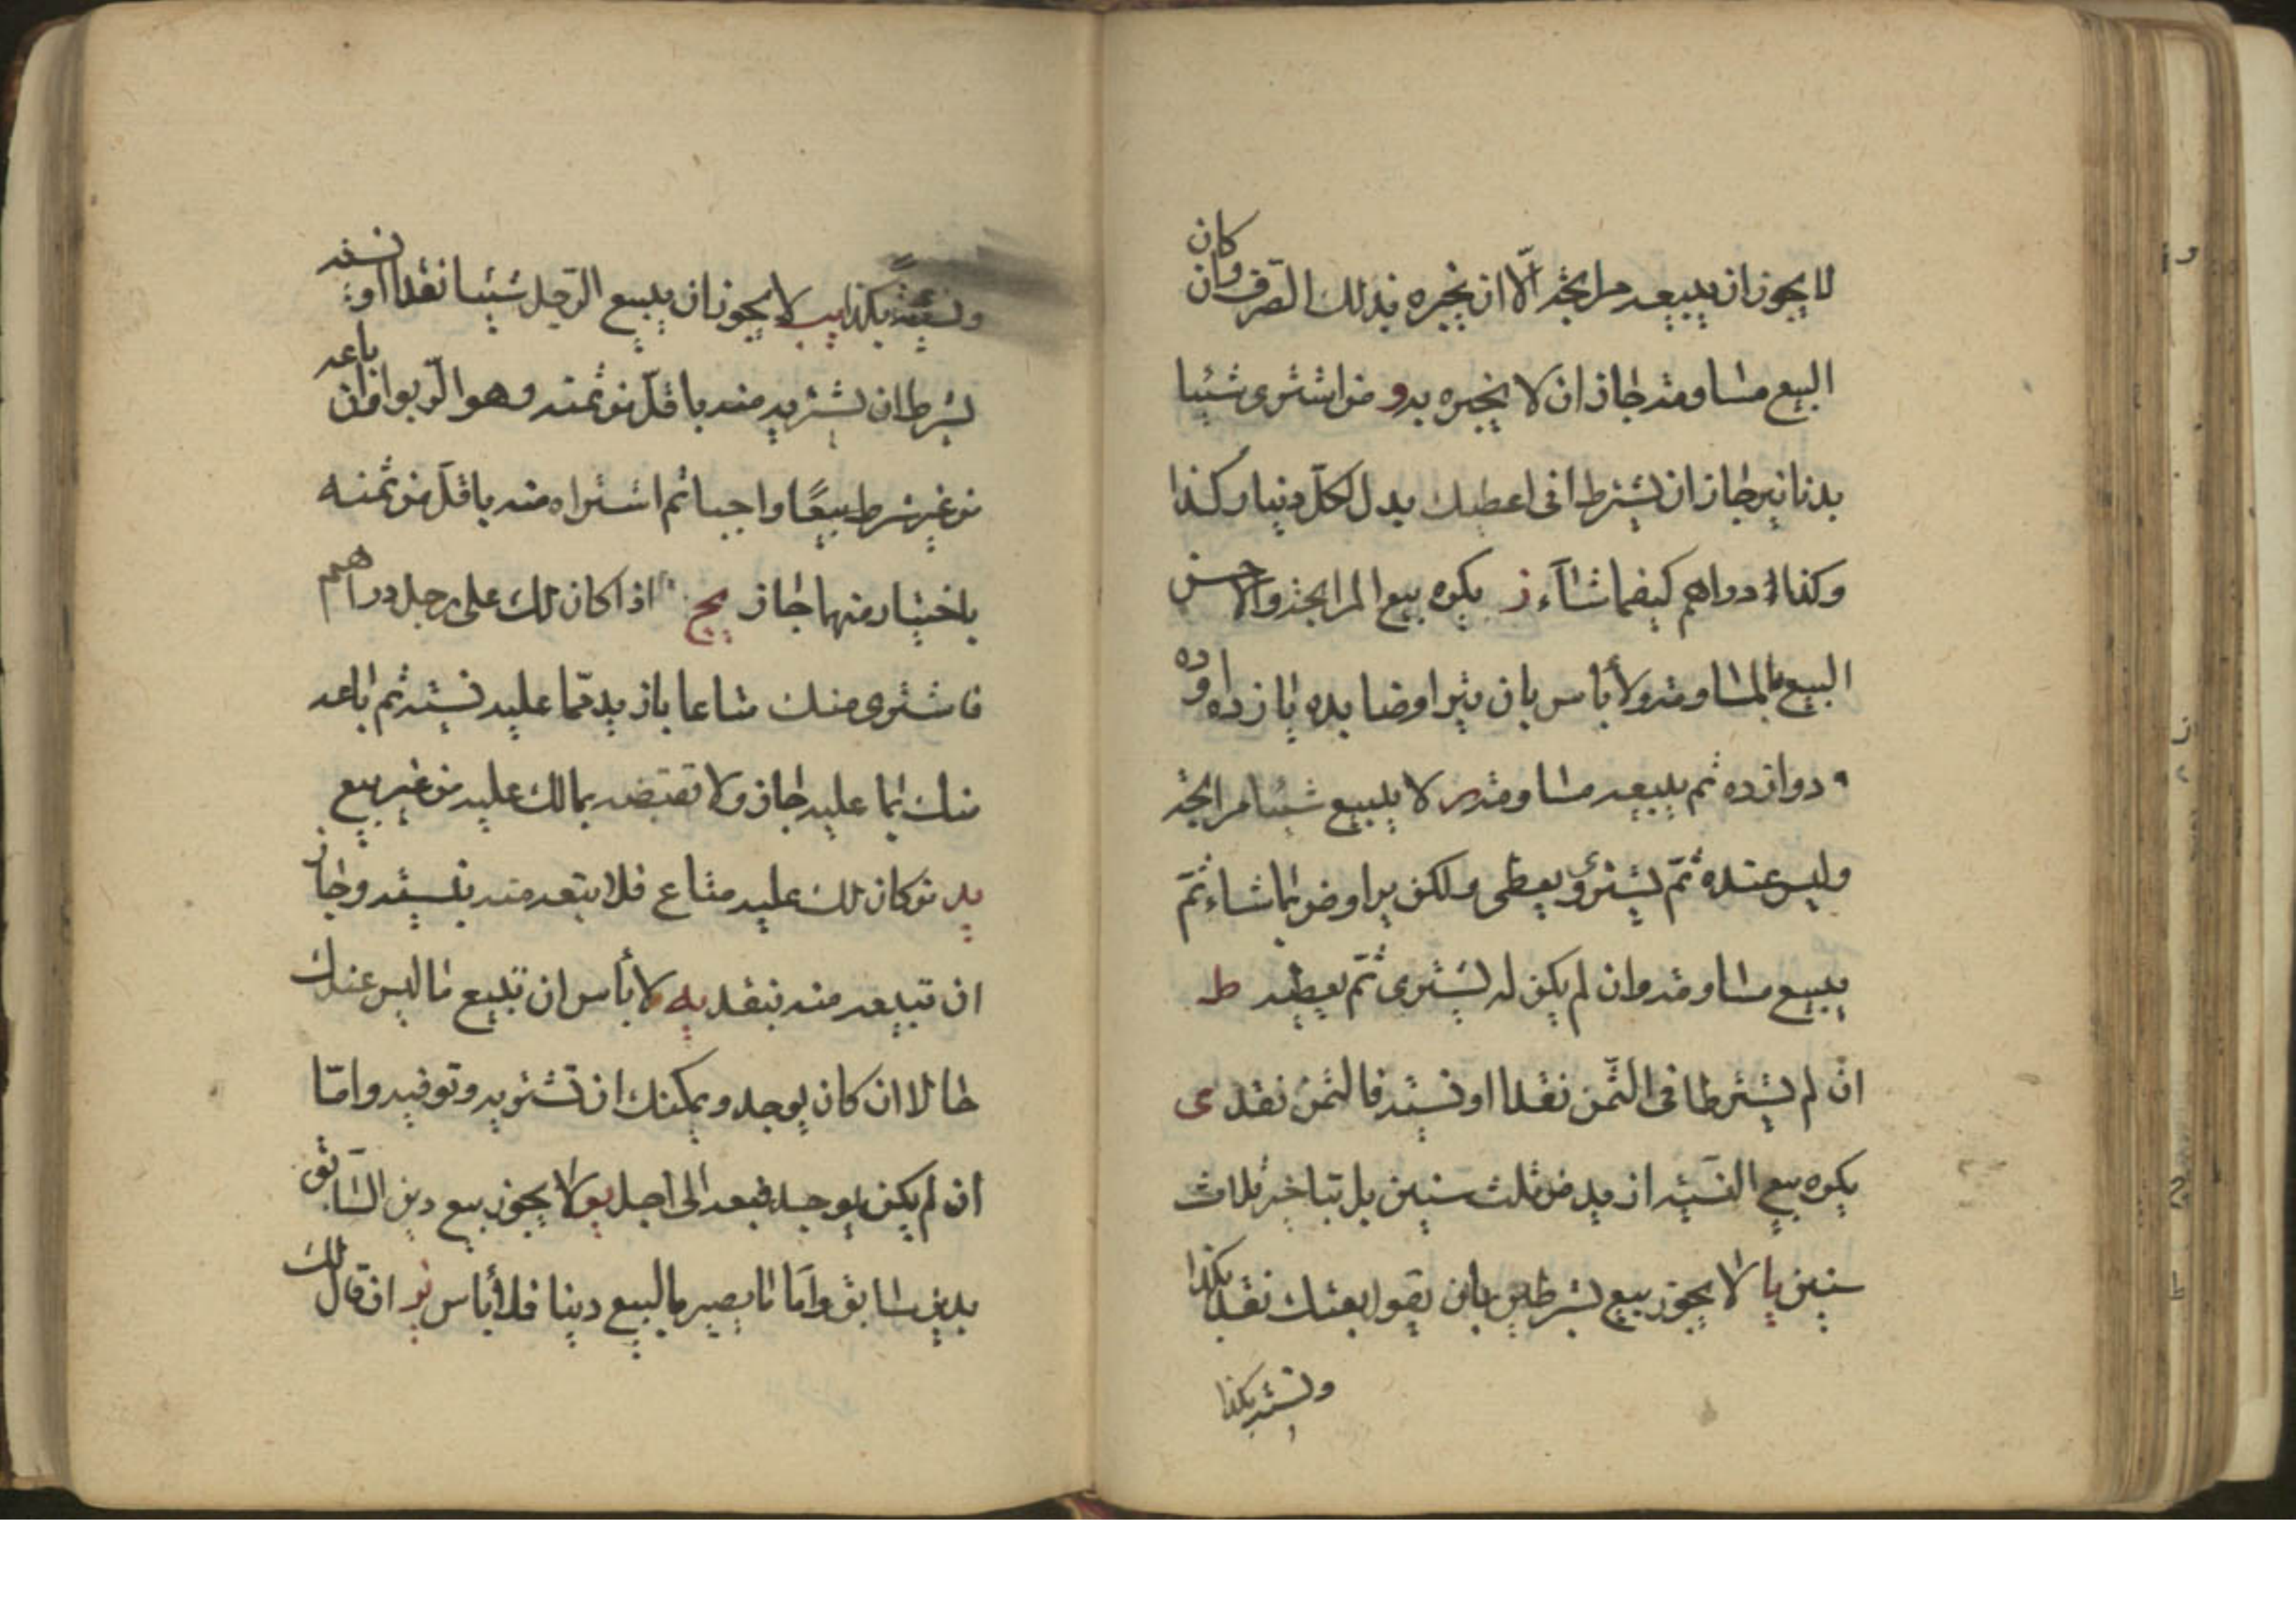 لا يجوز ان يبيعه مرابحة الّا ان يخبره بذلك الصرف وان كان
البيع مساومة جاز ان لا يخبره به و من اشترى شيئا
بدنانير جاز ان يشترط انى اعطيك بدل لكلّ دينار كذا
وكذا دراهم كيفما شاء ز يكره بيع المرابحة والاحسن
البيع بالمساومة ولا بأس بان يتراوضا بده يازده او ده
دوازده ثم يبيعه مساومة لا يبيع شيئا مرابحة
وليس عنده ثمّ يشترى ويعطى ولكن يراوض بما شاء ثمّ
يبيع مساومة وان لم يكن له يشترى ثمّ يعطيه ط
ان لم يشترطا فى الثّمن نقدا او نسيئة فالثمن نقد ى
يكره بيع النسيئة ازيد من ثلث سنين بل بتأخير ثلاث
سنين يا لا يجوز بيع بشرطين بان يقول بعتك نقدا بكذا
ونسيئة بكذا
ونسيئةً بكذا يب لا يجوز ان يبيع الرّجل شيئا نقدا او نسيئة
بشرط ان يشتريه منه باقلّ من ثمنه وهو الرّبوا فان باعه
من غير شرط بيعًا واجبا ثم اشتراه منه باقلّ من ثمنه
باختيار منهما جاز يج اذا كان لك على رجل دراهم
فاشترى منك متاعا بازيد ممّا عليه نسيئة ثم باعه
منك بما عليه جاز ولا تقتضه بمالك عليه من غير بيع
يد من كان لك عليه متاع فلا تبعه منه بنسيئة وجاز
ان تبيعه منه بنقد يه لا بأس ان تبيع ما ليس عندك
حالا ان كان يوجد ويمكنك ان تشتريه وتوفيه وامّا
ان لم يكن يوجد فبعه الى اجل يو لا يجوز بيع دين السّابق
بدين سابق وامّا ما يصير بالبيع دينا فلا بأس يز ان قال لك